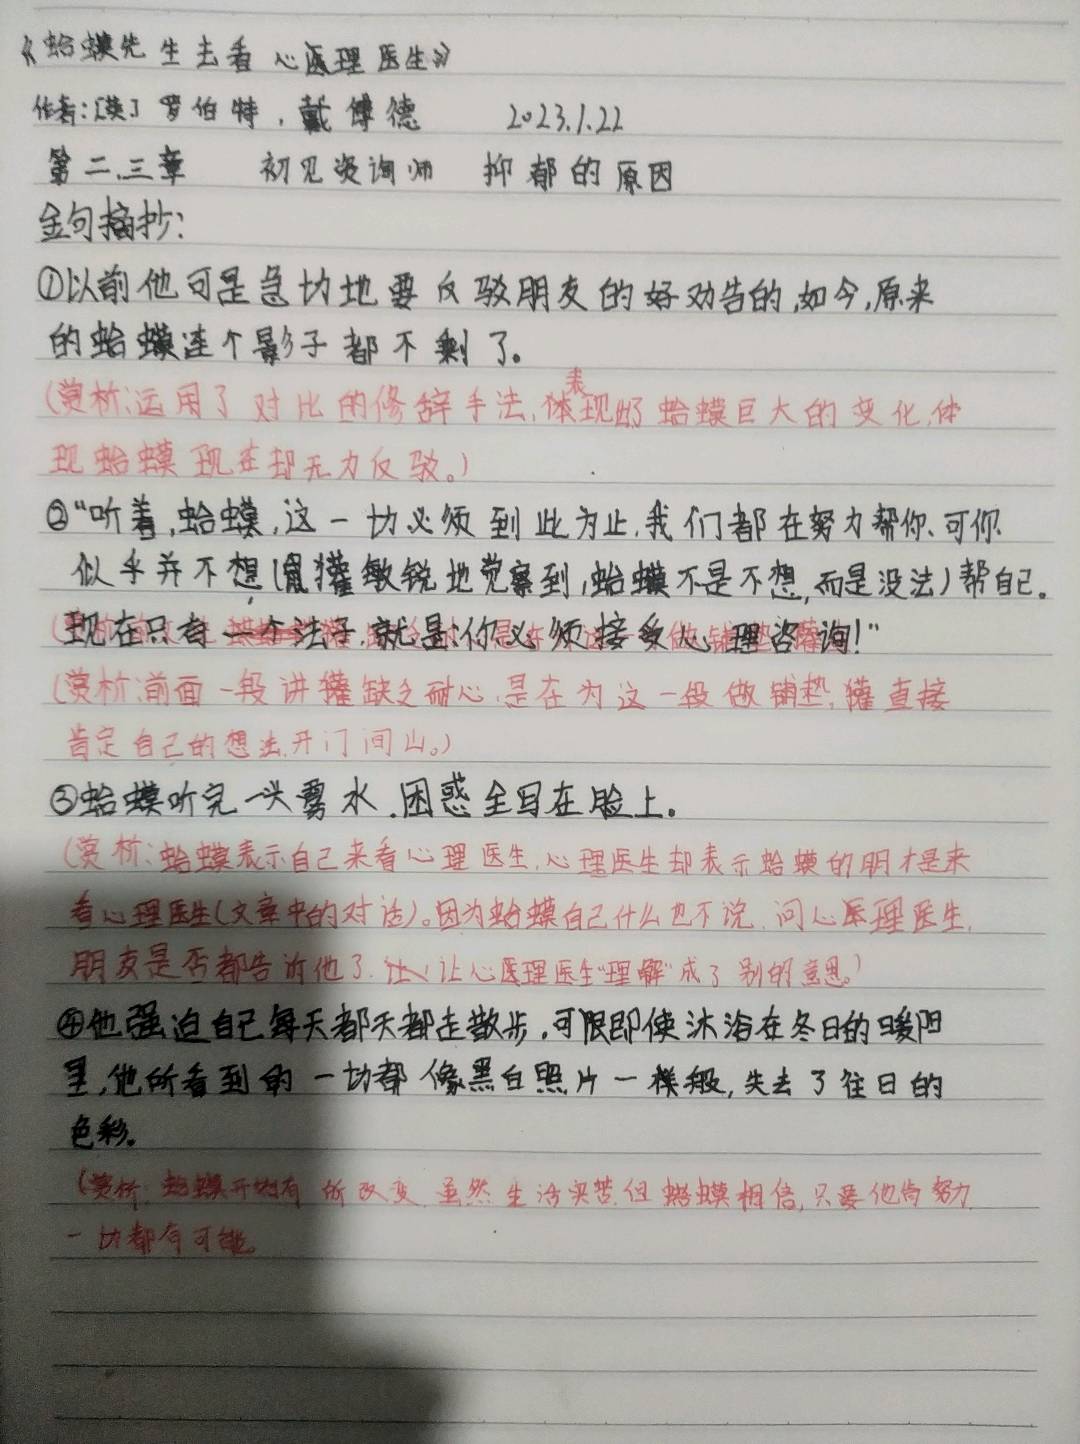 《蛤蟆先生去看心理医生》
作者:[英]罗伯特,戴博德 2023.1.22
第二、三章 初见咨询师 抑郁的原因
金句摘抄:
①以前他可是急切地要反驳朋友的好劝告的,如今,原来
的蛤蟆连个影子都不剩了。
(赏析:运用了对比的修辞手法,体现出了蛤蟆巨大的变化,体
表
现蛤蟆现在却无力反驳。)
②“听着,蛤蟆,这一切必须到此为止,我们都在努力帮你、可你
似乎并不想(鼠獾敏锐地觉察到,蛤蟆不是不想,而是没法)帮自己。
现在只有一个法子,就是:你必须接受心理咨询!”
(赏析:前面一段讲獾缺乏耐心,是在为这一段做铺垫,獾直接
肯定自己的想法,开门间山。)
③蛤蟆听完一头雾水,困惑全写在脸上。
(赏析:蛤蟆表示自己来看心理医生,心理医生却表示蛤蟆的朋才是来
看心理医生(文章中的对话)。因为蛤蟆自己什么也不说,问心理医生,
朋友是否都告诉他了,让心理医生“理解”成了别的意思。)
④他强迫自己每天都天都走散步,可限即使沐浴在冬日的暖阳
里,他所看到的一切都像黑白照片一样般,失去了往日的
色彩。
(赏析:蛤蟆开始有所改变,虽然生活实苦,但蛤蟆相信,只要他肯努力
一切都有可能。